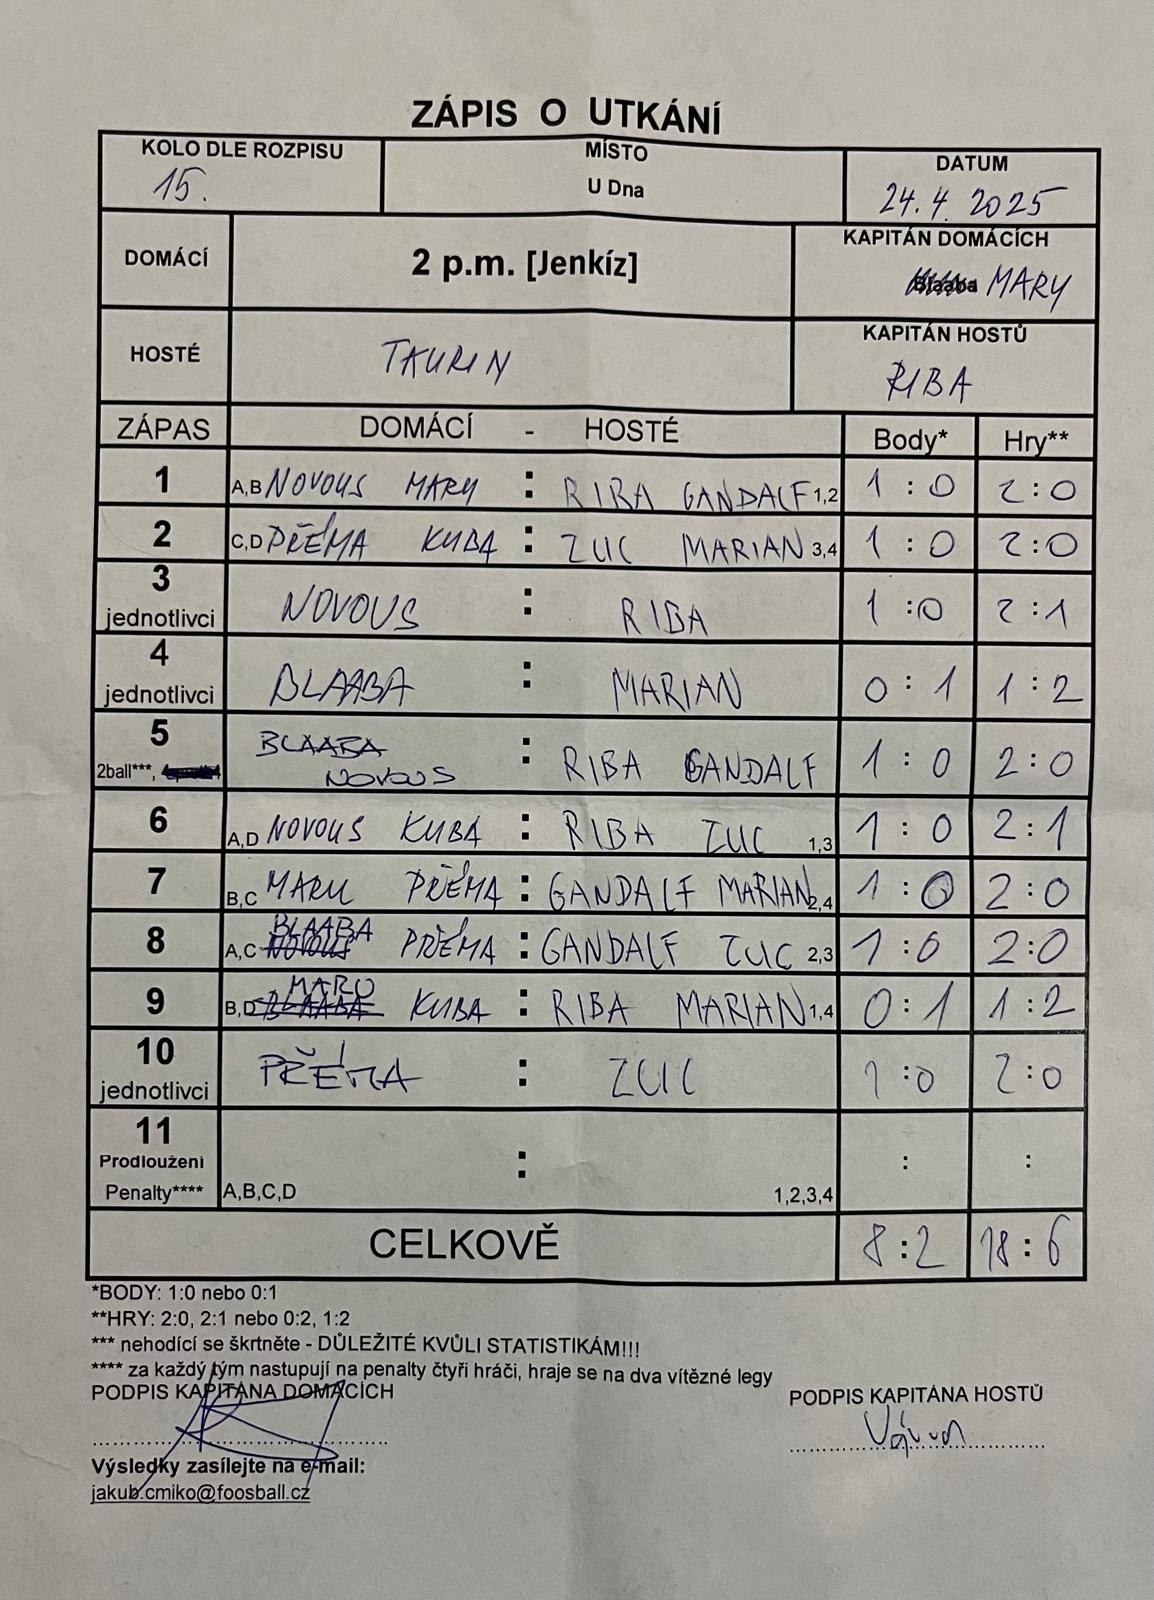 ZÁPIS O UTKÁNÍ
KOLO DLE ROZPISU MÍSTO DATUM
15. U Dna 24.4.2025
DOMÁCÍ 2 p.m. [Jenkíz] KAPITÁN DOMÁCÍCH
Blaaba MARY
HOSTÉ TAURIN KAPITÁN HOSTŮ
RIBA
ZÁPAS DOMÁCÍ - HOSTÉ Body* Hry**
1 A,B NOVOUS MARY : RIBA GANDALF 1,2 1:0 2:0
2 C,D PŘÉMA KUBA : ZUC MARIAN 3,4 1:0 2:0
3 jednotlivci NOVOUS : RIBA 1:0 2:1
4 jednotlivci BLAABA : MARIAN 0:1 1:2
5 BLAABA
2ball***, NOVOUS : RIBA GANDALF 1:0 2:0
6 A,D NOVOUS KUBA : RIBA ZUC 1,3 1:0 2:1
7 B,C MARY PŘÉMA : GANDALF MARIAN 2,4 1:0 2:0
8 A,C BLAABA NOVOUS PŘÉMA : GANDALF ZUC 2,3 1:0 2:0
9 B,D BLAABA KUBA : RIBA MARIAN 1,4 0:1 1:2
10 jednotlivci PŘÉMA : ZUC 1:0 2:0
11 : : :
Prodloužení
Penalty**** A,B,C,D 1,2,3,4
CELKOVĚ 8:2 18:6
*BODY: 1:0 nebo 0:1
**HRY: 2:0, 2:1 nebo 0:2, 1:2
*** nehodící se škrtněte - DŮLEŽITÉ KVŮLI STATISTIKÁM!!!
**** za každý tým nastupují na penalty čtyři hráči, hraje se na dva vítězné legy
PODPIS KAPITÁNA DOMÁCÍCH PODPIS KAPITÁNA HOSTŮ
Výsledky zasílejte na e-mail:
jakub.cmiko@foosball.cz